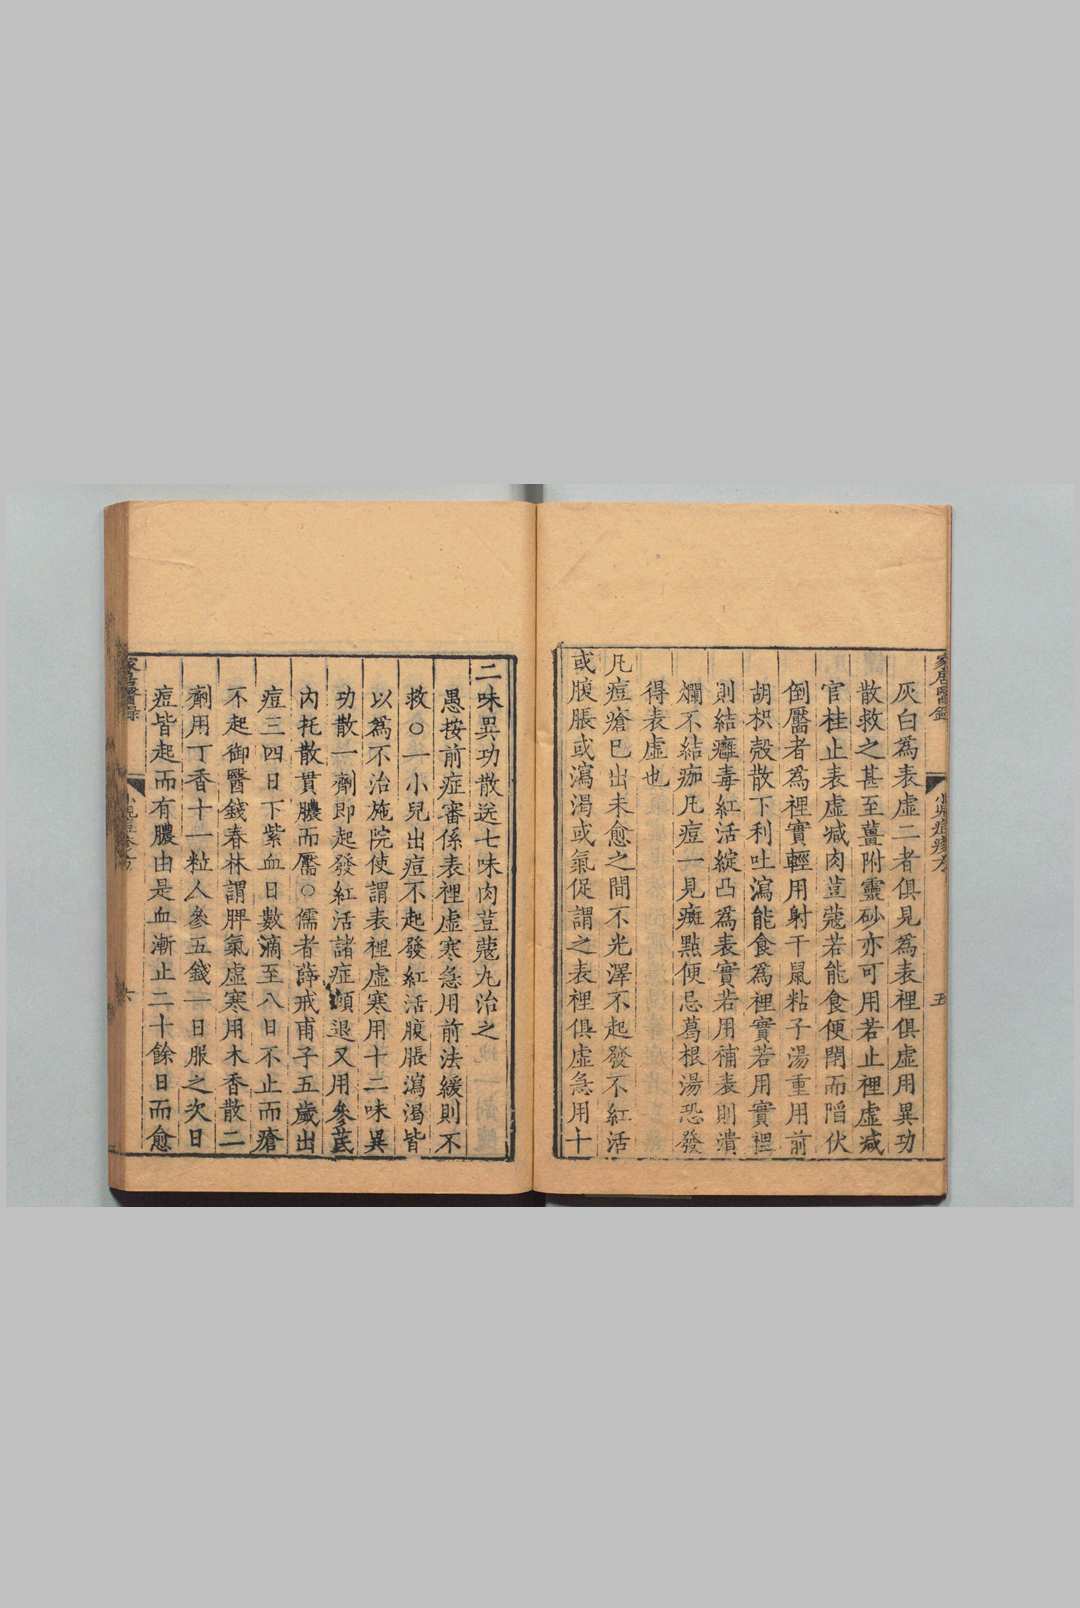 家居醫錄
小兒痘疹方
五
灰白為表虛二者俱見為表裡俱虛用異功
散救之甚至薑附靈砂亦可用若止裡虛減
官桂止表虛減肉荳蔻若能食便閉而陷伏
倒靨者為裡實輕用射干鼠粘子湯重用前
胡枳殼散下利吐瀉能食為裡實若用實裡
則結癰毒紅活綻凸為表實若用補表則潰
爛不結痂凡痘一見斑點便忌葛根湯恐發
得表虛也
凡痘瘡已出未愈之間不光澤不起發不紅活
或腹脹或瀉渴或氣促謂之表裡俱虛急用十
二味異功散送七味肉荳蔻丸治之
愚按前症審係表裡虛寒急用前法緩則不
救○一小兒出痘不起發紅活腹脹瀉渴皆
以為不治施院使謂表裡虛寒用十二味異
功散一劑即起發紅活諸症頓退又用參芪
內托散貫膿而靨○儒者薛戒甫子五歲出
痘三四日下紫血日數滴至八日不止而瘡
不起御醫錢春林謂脾氣虛寒用木香散二
劑用丁香十一粒人參五錢一日服之次日
痘皆起而有膿由是血漸止二十餘日而愈
家居醫錄
小兒痘疹方
六